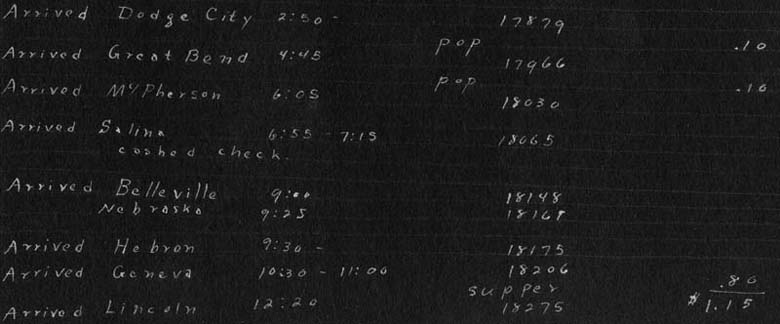 Arrived Dodge City 2:50 - 17879
pop .10
Arrived Great Bend 4:45 17966
pop .10
Arrived McPherson 6:05 18030
Arrived Salina 6:55 - 7:15 18065
cashed check.
Arrived Belleville 9:00 18148
Nebraska 9:25 18168
Arrived Hebron 9:30 - 18175
Arrived Geneva 10:30 - 11:00 18206
supper .80
Arrived Lincoln 12:20 18275 $1.15